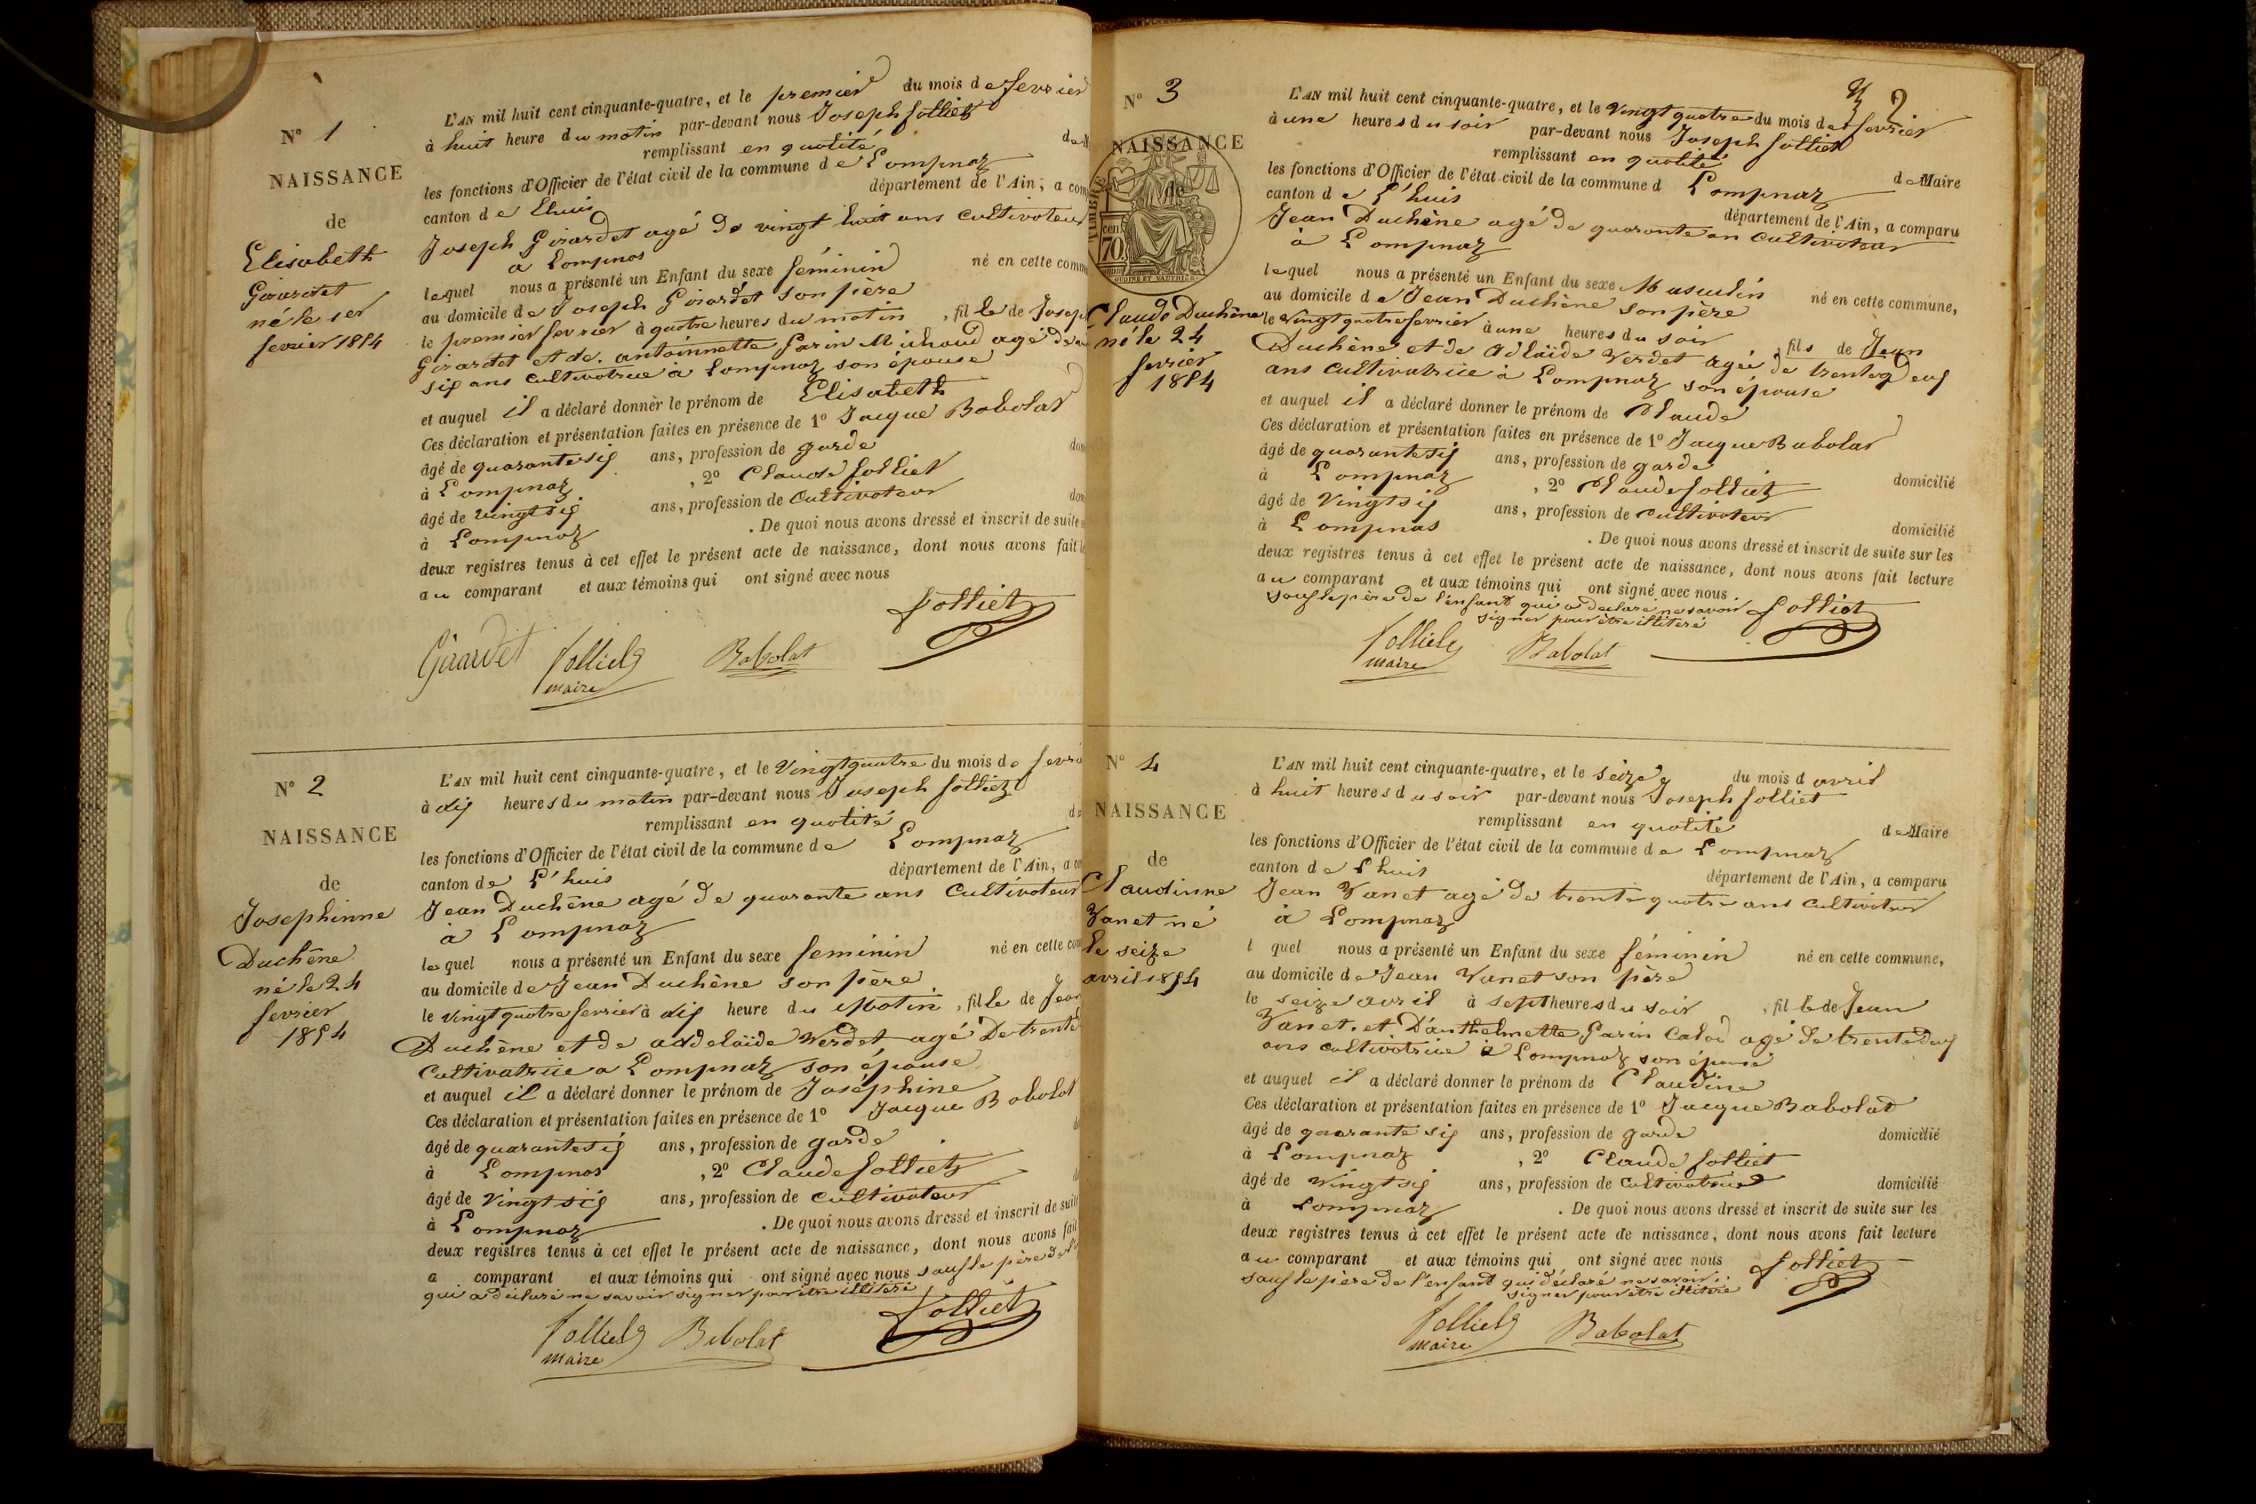 N° 1
NAISSANCE
de
Elisabeth
Girardet
né le 1er
fevrier 1854
L'AN mil huit cent cinquante-quatre, et le premier du mois de fevrier
à huit heure du matin par-devant nous Joseph Solliet
remplissant en qualité de M
les fonctions d'Officier de l'état civil de la commune de Lompnaz
canton de Lhuis département de l'Ain, a com
Joseph Girardet agé de vingt huit ans cultivateur
a Lompnas
lequel nous a présenté un Enfant du sexe féminin né en cette comm
au domicile de Joseph Girardet son père
le premier fevrier à quatre heures du matin, fille de Josep
Girardet et de antoinnette Parin Michoud agé de
sis ans cultivatrice a Lompnaz son épouse
et auquel il a déclaré donner le prénom de Elisabeth
Ces déclaration et présentation faites en présence de 1° Jacque Babolat
âgé de quarantesis ans, profession de garde do
à Lompnaz, 2° Claude Solliet
âgé de vingtsis ans, profession de Cultivateur do
à Lompnaz. De quoi nous avons dressé et inscrit de suite
deux registres tenus à cet effet le présent acte de naissance, dont nous avons fait
au comparant et aux témoins qui ont signé avec nous
Solliet
Girardet Solliet Babolat
maire
N° 2
NAISSANCE
de
Josephinne
Duchêne
né le 24
fevrier
1854
L'AN mil huit cent cinquante-quatre, et le Vingtquatre du mois de fevri
à dis heures du matin par-devant nous Joseph Solliet
remplissant en qualité d
les fonctions d'Officier de l'état civil de la commune de Lompnaz
canton de L'huis département de l'Ain, a co
Jean Duchêne agé de quarante ans Cultivateur
à Lompnaz
lequel nous a présenté un Enfant du sexe feminin né en cette com
au domicile de Jean Duchêne son père
le vingtquatre fevrier à dis heure du Matin, fille de Jean
Duchêne et de addelaïde Verdet agé De trente
Cultivatrice a Lompnaz son épouse
et auquel il a déclaré donner le prénom de Joséphine
Ces déclaration et présentation faites en présence de 1° Jacque Babolat
âgé de quarantesis ans, profession de garde
à Lompnas, 2° Claude Solliet
âgé de Vingtsis ans, profession de cultivateur
à Lompnaz. De quoi nous avons dressé et inscrit de suite
deux registres tenus à cet effet le présent acte de naissance, dont nous avons fait
a comparant et aux témoins qui ont signé avec nous sauf le père de l'
qui a déclaré ne savoir signer pour être illiteré
Solliet
Solliet Babolat
maire
2
N° 3
NAISSANCE
de
TIMBRE
cent
70
OUDINÉ ET VAUTHIER
Claude Duchêne
né le 24
fevrier
1854
L'AN mil huit cent cinquante-quatre, et le Vingtquatre du mois de fevrier
à une heures du soir par-devant nous Joseph Solliet
remplissant en qualité de Maire
les fonctions d'Officier de l'état civil de la commune d Lompnaz
canton de L'huis département de l'Ain, a comparu
Jean Duchêne agé de quarante an cultivateur
à Lompnaz
lequel nous a présenté un Enfant du sexe Masculin né en cette commune,
au domicile de Jean Duchêne son père
le Vingtquatre fevrier à une heures du soir, fils de Jean
Duchêne et de Adelaïde Verdet agée de trente deus
ans cultivatrice à Lompnaz son épouse
et auquel il a déclaré donner le prénom de Claude
Ces déclaration et présentation faites en présence de 1° Jacque Babolat
âgé de quarantesis ans, profession de garde domicilié
à Lompnaz, 2° Claude Solliet
âgé de Vingtsis ans, profession de cultivateur domicilié
à Lompnas. De quoi nous avons dressé et inscrit de suite sur les
deux registres tenus à cet effet le présent acte de naissance, dont nous avons fait lecture
au comparant et aux témoins qui ont signé avec nous
sauf le père de l'enfant qui a déclaré ne savoir
signer pour être illiteré
Solliet
Solliet Babolat
maire
N° 4
NAISSANCE
de
Claudinne
Vanet né
le seize
avril 1854
L'AN mil huit cent cinquante-quatre, et le seize du mois d avril
à huit heures du soir par-devant nous Joseph Solliet
remplissant en qualité de Maire
les fonctions d'Officier de l'état civil de la commune de Lompnaz
canton de Lhuis département de l'Ain, a comparu
Jean Vanet agé de trente quatre ans cultivateur
à Lompnaz
l quel nous a présenté un Enfant du sexe féminin né en cette commune,
au domicile de Jean Vanet son père
le seize avril à sept heures du soir, fille de Jean
Vanet et D'anthelmette Parin Calod agé de trente deus
ans cultivatrice à Lompnaz son épouse
et auquel il a déclaré donner le prénom de Claudine
Ces déclaration et présentation faites en présence de 1° Jacque Babolat
âgé de quarante sis ans, profession de garde domicilié
à Lompnaz, 2° Claude Solliet
âgé de Vingtsis ans, profession de Cultivatrice domicilié
à Lompnaz. De quoi nous avons dressé et inscrit de suite sur les
deux registres tenus à cet effet le présent acte de naissance, dont nous avons fait lecture
au comparant et aux témoins qui ont signé avec nous
sauf le père de l'enfant qui déclaré ne savoir
signer pour être illiteré
Solliet
Solliet Babolat
maire